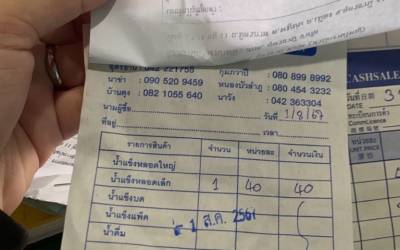 อุดรธานี 042 221758 กุมภวาปี : 080 899 8992
นาข่า : 090 520 9459 หนองบัวลำภู : 080 454 3232
บ้านดุง : 082 1055 640 นาวัง : 042 363304
นามผู้ซื้อ วันที่ 1/8/67
ที่อยู่ เวลา
รายการสินค้า จำนวน หน่วยละ จำนวนเงิน
น้ำแข็งหลอดใหญ่
น้ำแข็งหลอดเล็ก 1 40 40
น้ำแข็งบด
น้ำแข็งแพ็ค - 1 ส.ค. 2567
น้ำดื่ม
CASHSALE
วันที่
DATE
ทะเบียนการค้า
Comm.Licence
หน่วยละ
UNIT PRICE